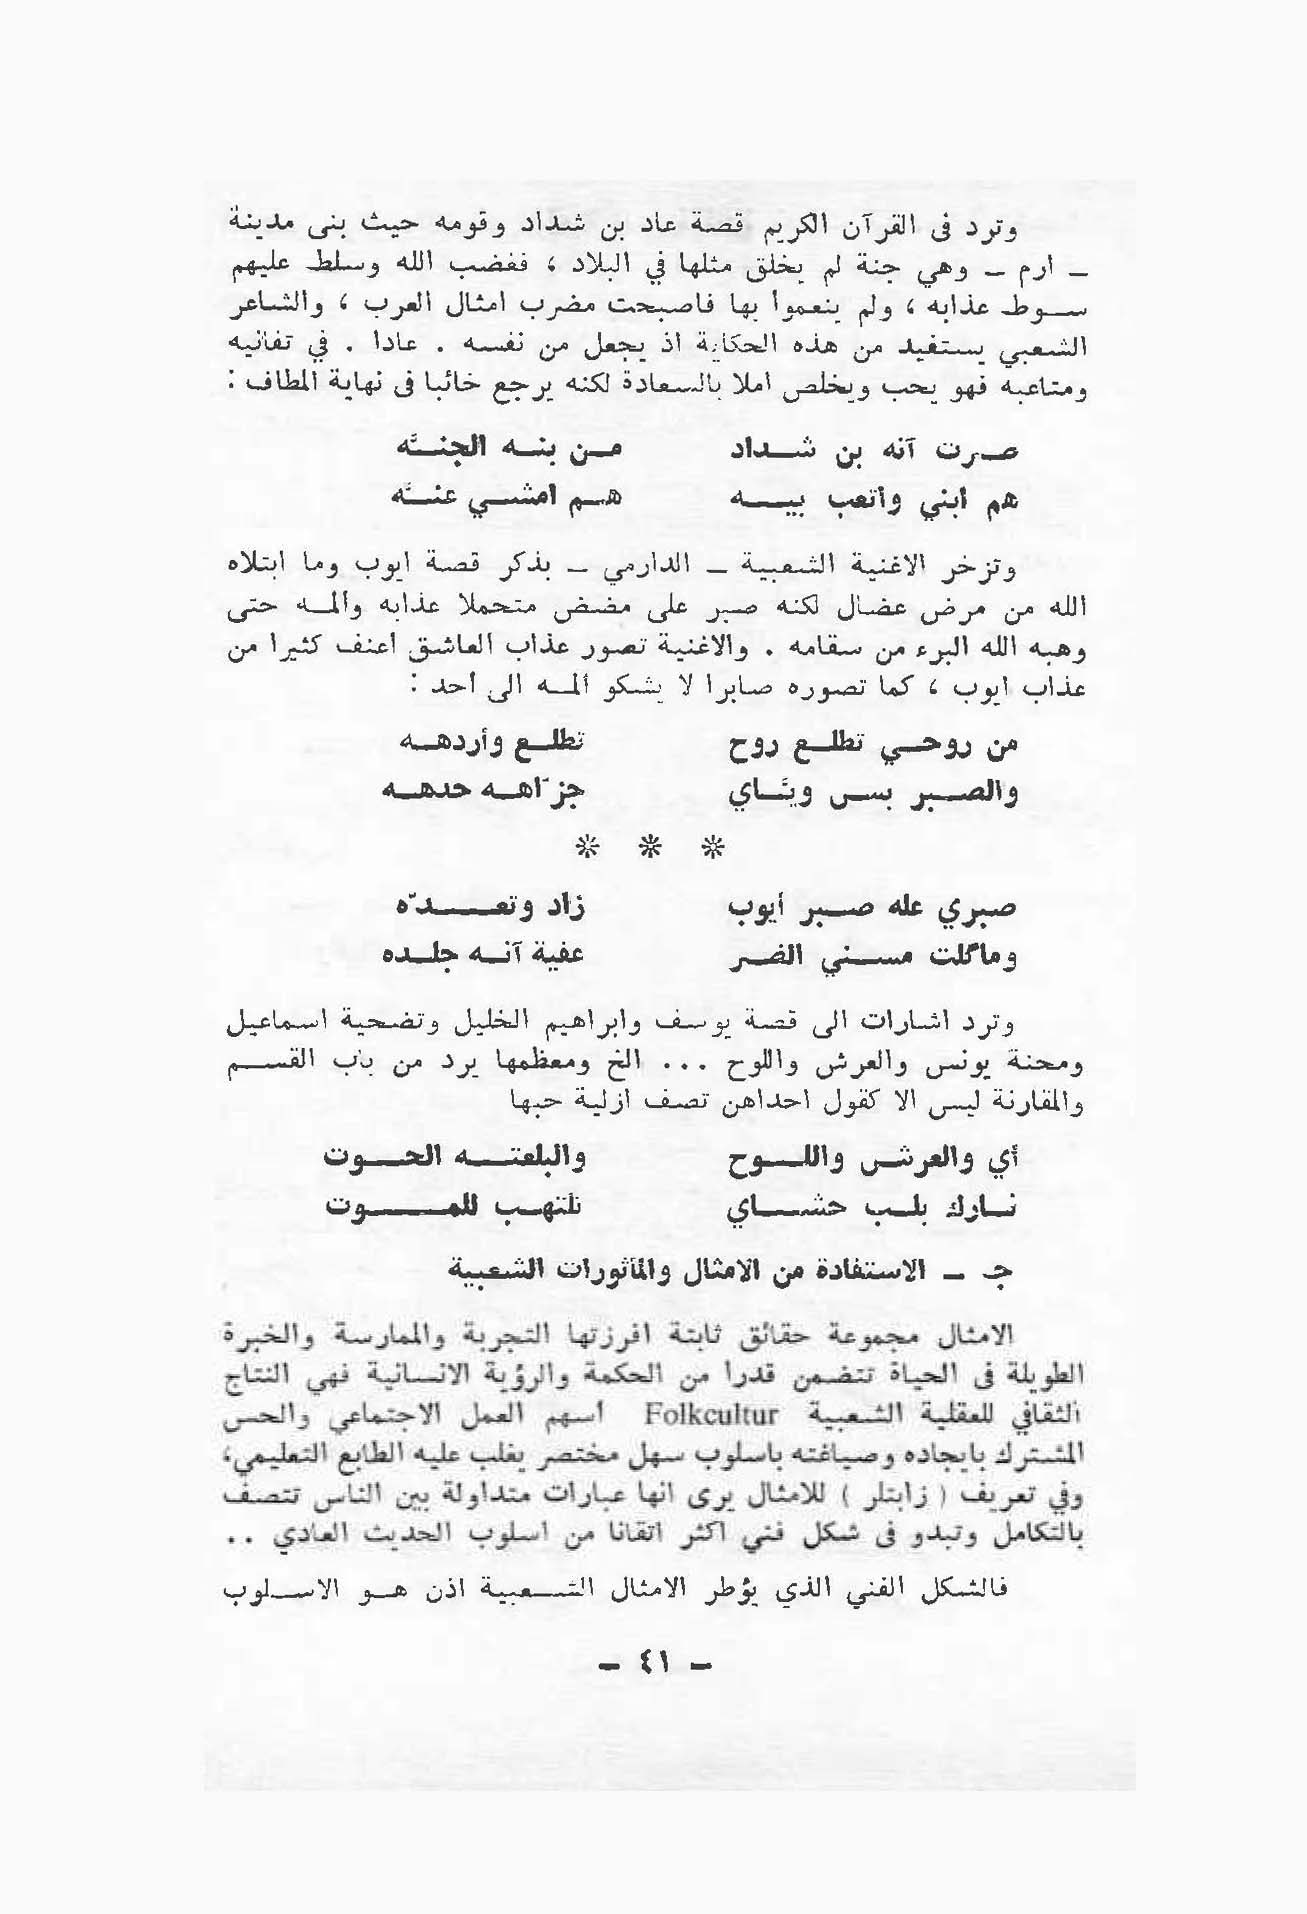 وترد فى القرآن الكريم قصة عاد بن شداد وقومه حيث بنى مدينة
ـ ارم ـ وهي جنة لم يخلق مثلها في البلاد ، فغضب الله وسلط عليهم
سوط عذابه ، ولم ينعموا بها فاصبحت مضرب امثال العرب ، والشاعر
الشعبي يستفيد من هذه الحكاية اذ يجعل من نفسه . عادا . في تفانيه
ومتاعبه فهو يحب ويخلص املا بالسعادة لكنه يرجع خائبا فى نهاية المطاف :
صرت آنه بن شداد من بنه الجنَّه
هم ابني واتعب بيه هم امشي عنَّه
وتزخر الاغنية الشعبية ـ الدارمي ـ بذكر قصة ايوب وما ابتلاه
الله من مرض عضال لكنه صبر على مضض متحملا عذابه والمه حتى
وهبه الله البرء من سقامه . والاغنية تصور عذاب العاشق اعنف كثيرا من
عذاب ايوب ، كما تصوره صابرا لا يشكو ألمه الى أحد :
من روحي تطلع روح تطلع وأردهه
والصبر بس ويَّاي جزّاهه حدهه
* * *
صبري عله صبر أيوب زاد وتعدّه
وماگلت مسني الضر عفية آنه جلده
وترد اشارات الى قصة يوسف وابراهيم الخليل وتضحية اسماعيل
ومحنة يونس والعرش واللوح ... الخ ومعظمها يرد من باب القسم
والمقارنة ليس الا كقول احداهن تصف ازلية حبها
أي والعرش واللوح والبلعته الحوت
نارك بلب حشاي تلتهب للموت
جـ ـ الاستفادة من الامثال والمأثورات الشعبية
الامثال مجموعة حقائق ثابتة افرزتها التجربة والممارسة والخبرة
الطويلة فى الحياة تتضمن قدرا من الحكمة والرؤية الانسانية فهي النتاج
الثقافي للعقلية الشعبية Folkcultur أسهم العمل الاجتماعي والحس
المشترك بايجاده وصياغته باسلوب سهل مختصر يغلب عليه الطابع التعليمي،
وفي تعريف ( زايتلر ) للامثال يرى انها عبارات متداولة بين الناس تتصف
بالتكامل وتبدو فى شكل فني اكثر اتقانا من اسلوب الحديث العادي ..
فالشكل الفني الذي يؤطر الامثال الشعبية اذن هو الاسلوب
ـ ٤١ ـ